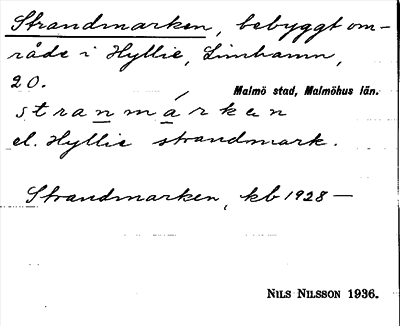 Strandmarken, bebyggt om-
råde i Hyllie, Limhamn,
20.
Malmö stad, Malmöhus län.
stranmárken
el. Hyllie strandmark.
Strandmarken, kb 1928 —
NILS NILSSON 1936.